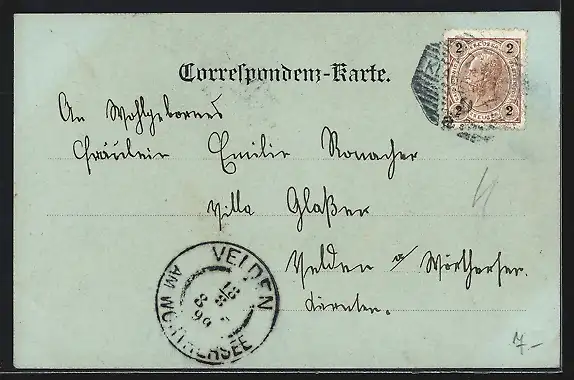 Correspondenz-Karte.
2 2
2 2
An Wohlgebornes
Fräulein Emilie Ronacher
Villa Glaßer
Velden a/ Wörthersee.
Kärnten.
VELDEN
AM WÖRTHERSEE
7.-